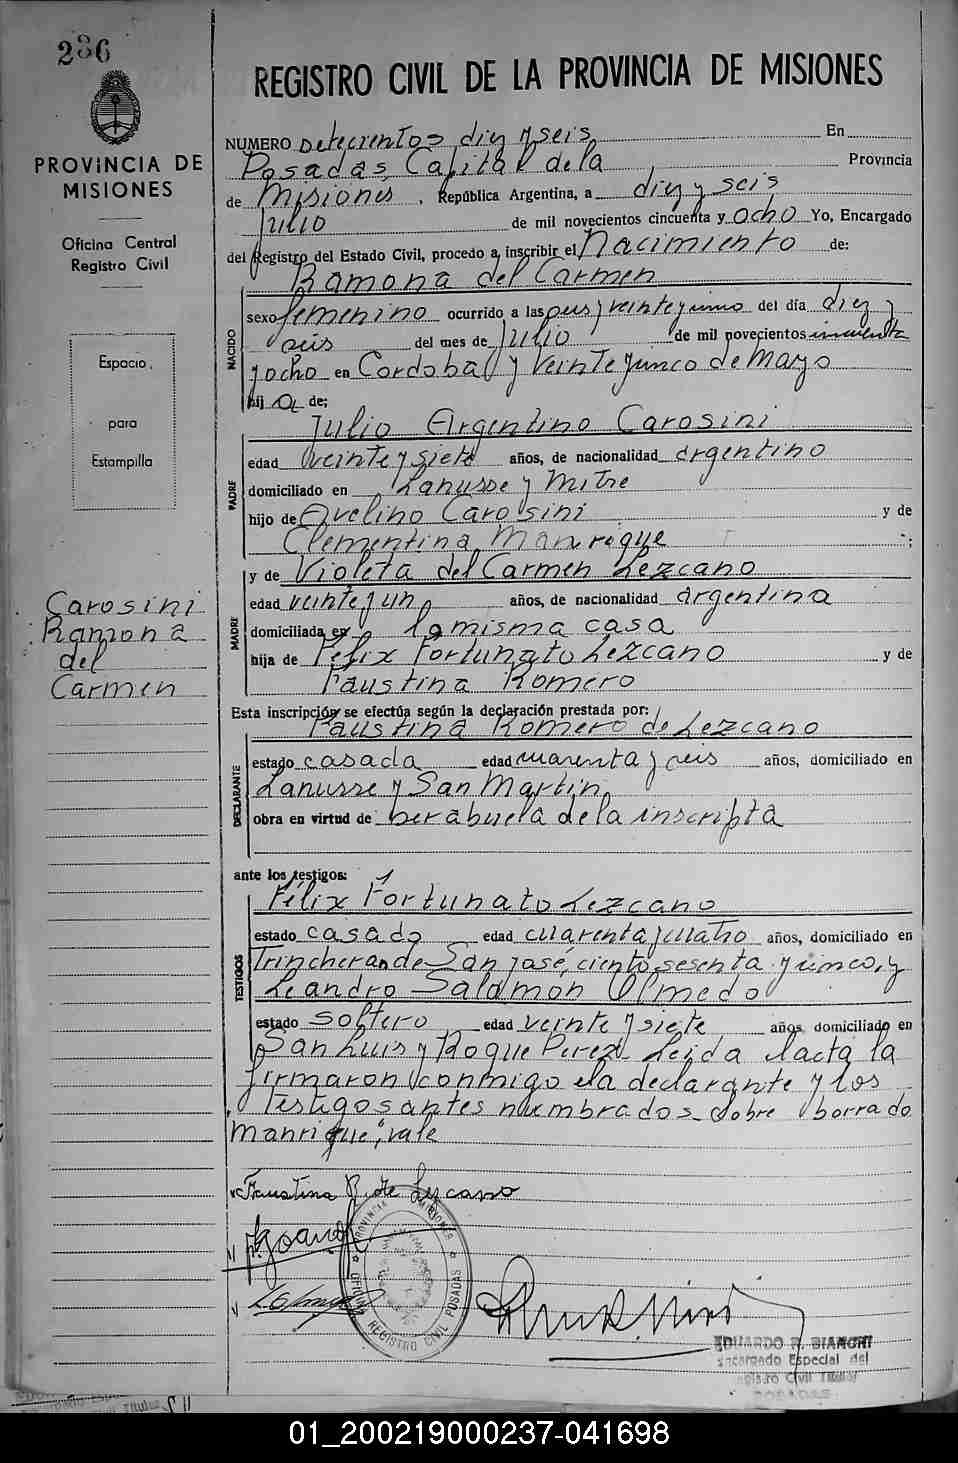 236
PROVINCIA DE
MISIONES
Oficina Central
Registro Civil
Espacio
para
Estampilla
Carosini
Ramona
del
Carmen
REGISTRO CIVIL DE LA PROVINCIA DE MISIONES
NUMERO Setecientos diez y seis En
Posadas, Capital de la Provincia
de Misiones, República Argentina, a diez y seis
Julio de mil novecientos cincuenta y ocho Yo, Encargado
del Registro del Estado Civil, procedo a inscribir el Nacimiento de:
Ramona del Carmen
NACIDO
sexo femenino ocurrido a las seis y veinte y uno del día diez y
seis del mes de Julio de mil novecientos cincuenta
y ocho en Cordoba y Veinte y unco de Mayo
hij a de;
Julio Argentino Carosini
PADRE
edad veinte y siete años, de nacionalidad argentino
domiciliado en Lanusse y Mitre
hijo de Avelino Carosini y de
Clementina Manrique ;
y de Violeta del Carmen Lezcano
MADRE
edad veinte y un años, de nacionalidad argentina
domiciliada en la misma casa
hija de Félix Fortunato Lezcano y de
Faustina Romero
Esta inscripción se efectúa según la declaración prestada por:
Faustina Romero de Lezcano
DECLARANTE
estado casada edad cuarenta y seis años, domiciliado en
Lanusse y San Martin
obra en virtud de ser abuela de la inscripta
ante los testigos:
Félix Fortunato Lezcano
TESTIGOS
estado casado edad cuarenta y cuatro años, domiciliado en
Trinchera de San José, ciento sesenta y cinco, y
Leandro Salomón Olmedo
estado soltero edad veinte y siete años, domiciliado en
San Luis y Roque Perez. Leida el acta la
firmaron conmigo la declarante y los
testigos antes nombrados. Sobre borrado
"Manrique", vale
Faustina R. de Lezcano
PROVINCIA MISIONES
OFICINA REGISTRO CIVIL POSADAS
EDUARDO R. BIANCHI
Encargado Especial del
Registro Civil Titular
POSADAS
01_200219000237-041698